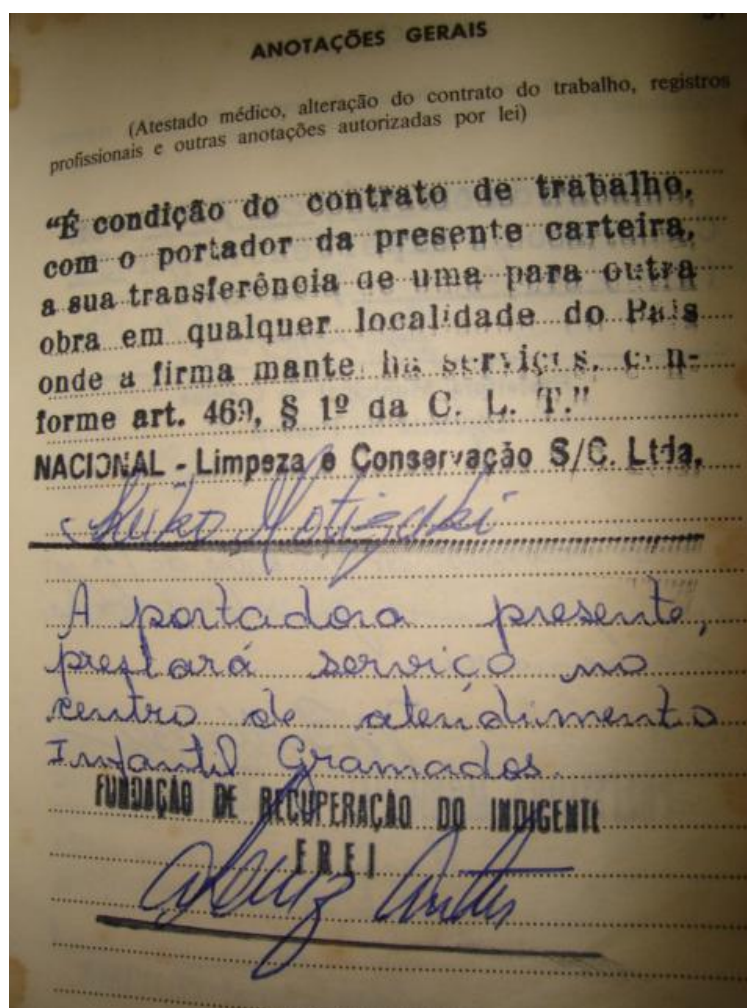 ANOTAÇÕES GERAIS
(Atestado médico, alteração do contrato do trabalho, registros
profissionais e outras anotações autorizadas por lei)
"É condição do contrato de trabalho,
com o portador da presente carteira,
a sua transferência de uma para outra
obra em qualquer localidade do País
onde a firma mante ha serviços, con-
forme art. 469, § 1º da C. L. T."
NACIONAL - Limpeza e Conservação S/C. Ltda.
A portadora presente,
prestará serviço no
centro de atendimento
Infantil Gramados.
FUNDAÇÃO DE RECUPERAÇÃO DO INDIGENTE
FREI